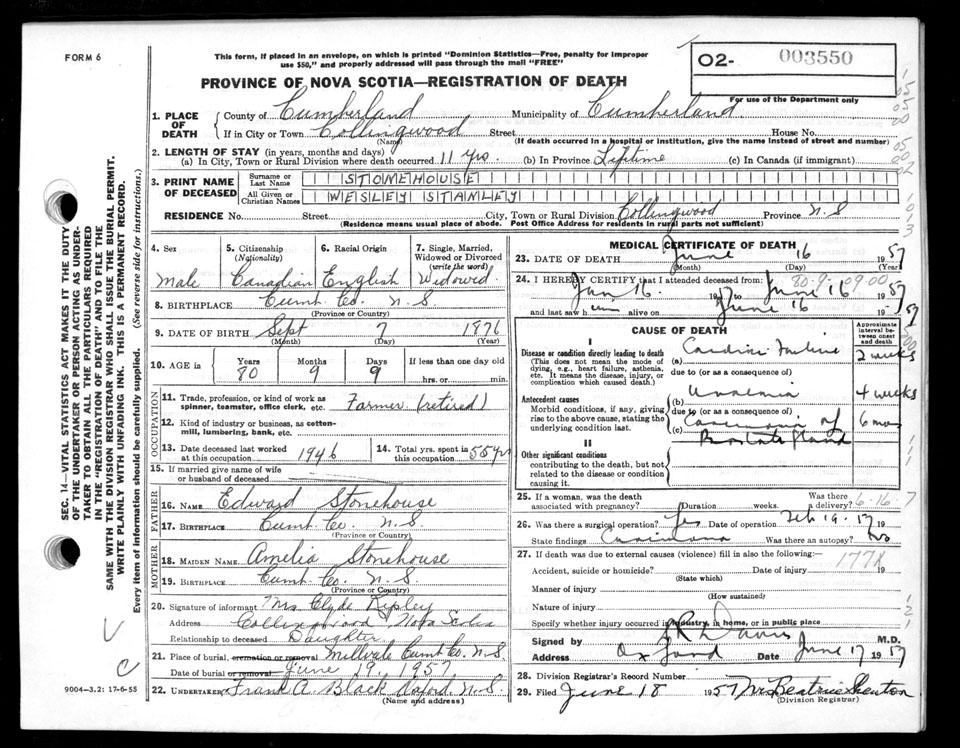 FORM 6
This form, if placed in an envelope, on which is printed "Dominion Statistics—Free, penalty for improper
use $50," and properly addressed will pass through the mail "FREE"
PROVINCE OF NOVA SCOTIA—REGISTRATION OF DEATH
02- 003550
For use of the Department only
1. PLACE OF DEATH
County of Cumberland Municipality of Cumberland
If in City or Town Collingwood Street House No.
(Name) (If death occurred in a hospital or institution, give the name instead of street and number)
2. LENGTH OF STAY (in years, months and days)
(a) In City, Town or Rural Division where death occurred 11 yrs. (b) In Province Lifetime (c) In Canada (if immigrant)
3. PRINT NAME OF DECEASED
Surname or Last Name STONEHOUSE
All Given or Christian Names WESLEY STANLEY
RESIDENCE No. Street City, Town or Rural Division Collingwood Province N.S
(Residence means usual place of abode. Post Office Address for residents in rural parts not sufficient)
4. Sex Male
5. Citizenship (Nationality) Canadian
6. Racial Origin English
7. Single, Married, Widowed or Divorced (write the word) Widowed
8. BIRTHPLACE Cumb Co. N.S
(Province or Country)
9. DATE OF BIRTH Sept 7 1876
(Month) (Day) (Year)
10. AGE in Years 80 Months 9 Days 9 If less than one day old
hrs. or min.
OCCUPATION
11. Trade, profession, or kind of work as spinner, teamster, office clerk, etc. Farmer (retired)
12. Kind of industry or business, as cotton-mill, lumbering, bank, etc.
13. Date deceased last worked at this occupation 1946
14. Total yrs. spent in this occupation 55 yrs
15. If married give name of wife or husband of deceased
FATHER
16. NAME Edward Stonehouse
17. BIRTHPLACE Cumb. Co. N.S.
(Province or Country)
MOTHER
18. MAIDEN NAME Amelia Stonehouse
19. BIRTHPLACE Cumb Co. N.S
(Province or Country)
20. Signature of informant Mrs Clyde Ripley
Address Collingwood, Nova Scotia
Relationship to deceased Daughter
21. Place of burial, cremation or removal Millvale Cumb Co. N.S
Date of burial or removal June 19, 1957
22. UNDERTAKER Frank A. Black Oxford, N.S.
(Name and address)
MEDICAL CERTIFICATE OF DEATH
23. DATE OF DEATH June 16 1957
(Month) (Day) (Year)
80-9-09.00
24. I HEREBY CERTIFY that I attended deceased from:
Jan 16 1957 to June 16 1957
and last saw him alive on June 16 1957
CAUSE OF DEATH
Approximate interval between onset and death
I
Disease or condition directly leading to death (This does not mean the mode of dying, e.g., heart failure, asthenia, etc. It means the disease, injury, or complication which caused death.)
(a) Cardiac Failure 2 weeks
due to (or as a consequence of)
Antecedent causes
Morbid conditions, if any, giving rise to the above cause, stating the underlying condition last.
(b) Uraemia 4 weeks
due to (or as a consequence of)
(c) Carcinoma of Prostate Gland 6 mos
II
Other significant conditions contributing to the death, but not related to the disease or condition causing it.
25. If a woman, was the death associated with pregnancy? Duration weeks. Was there a delivery?
6-16-7
26. Was there a surgical operation? Yes Date of operation Feb 19. 57 19
State findings Carcinoma Was there an autopsy? No
27. If death was due to external causes (violence) fill in also the following:—
Accident, suicide or homicide? Date of injury 19
(State which)
177X
Manner of injury
(How sustained)
Nature of injury
Specify whether injury occurred in industry, in home, or in public place
Signed by Davis M.D.
Address Oxford Date June 17 1957
28. Division Registrar's Record Number
29. Filed June 18 1957 Mrs Beatrice Skenton
(Division Registrar)
SEC. 14—VITAL STATISTICS ACT MAKES IT THE DUTY
OF THE UNDERTAKER OR PERSON ACTING AS UNDER-
TAKER TO OBTAIN ALL THE PARTICULARS REQUIRED
IN THE "REGISTRATION OF DEATH" AND TO FILE THE
SAME WITH THE DIVISION REGISTRAR WHO SHALL ISSUE THE BURIAL PERMIT.
WRITE PLAINLY WITH UNFADING INK. THIS IS A PERMANENT RECORD.
Every item of information should be carefully supplied. (See reverse side for instructions.)
9004—3.2: 17-6-55